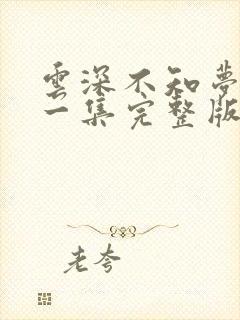 雲深不知夢
一集完整版
老夸